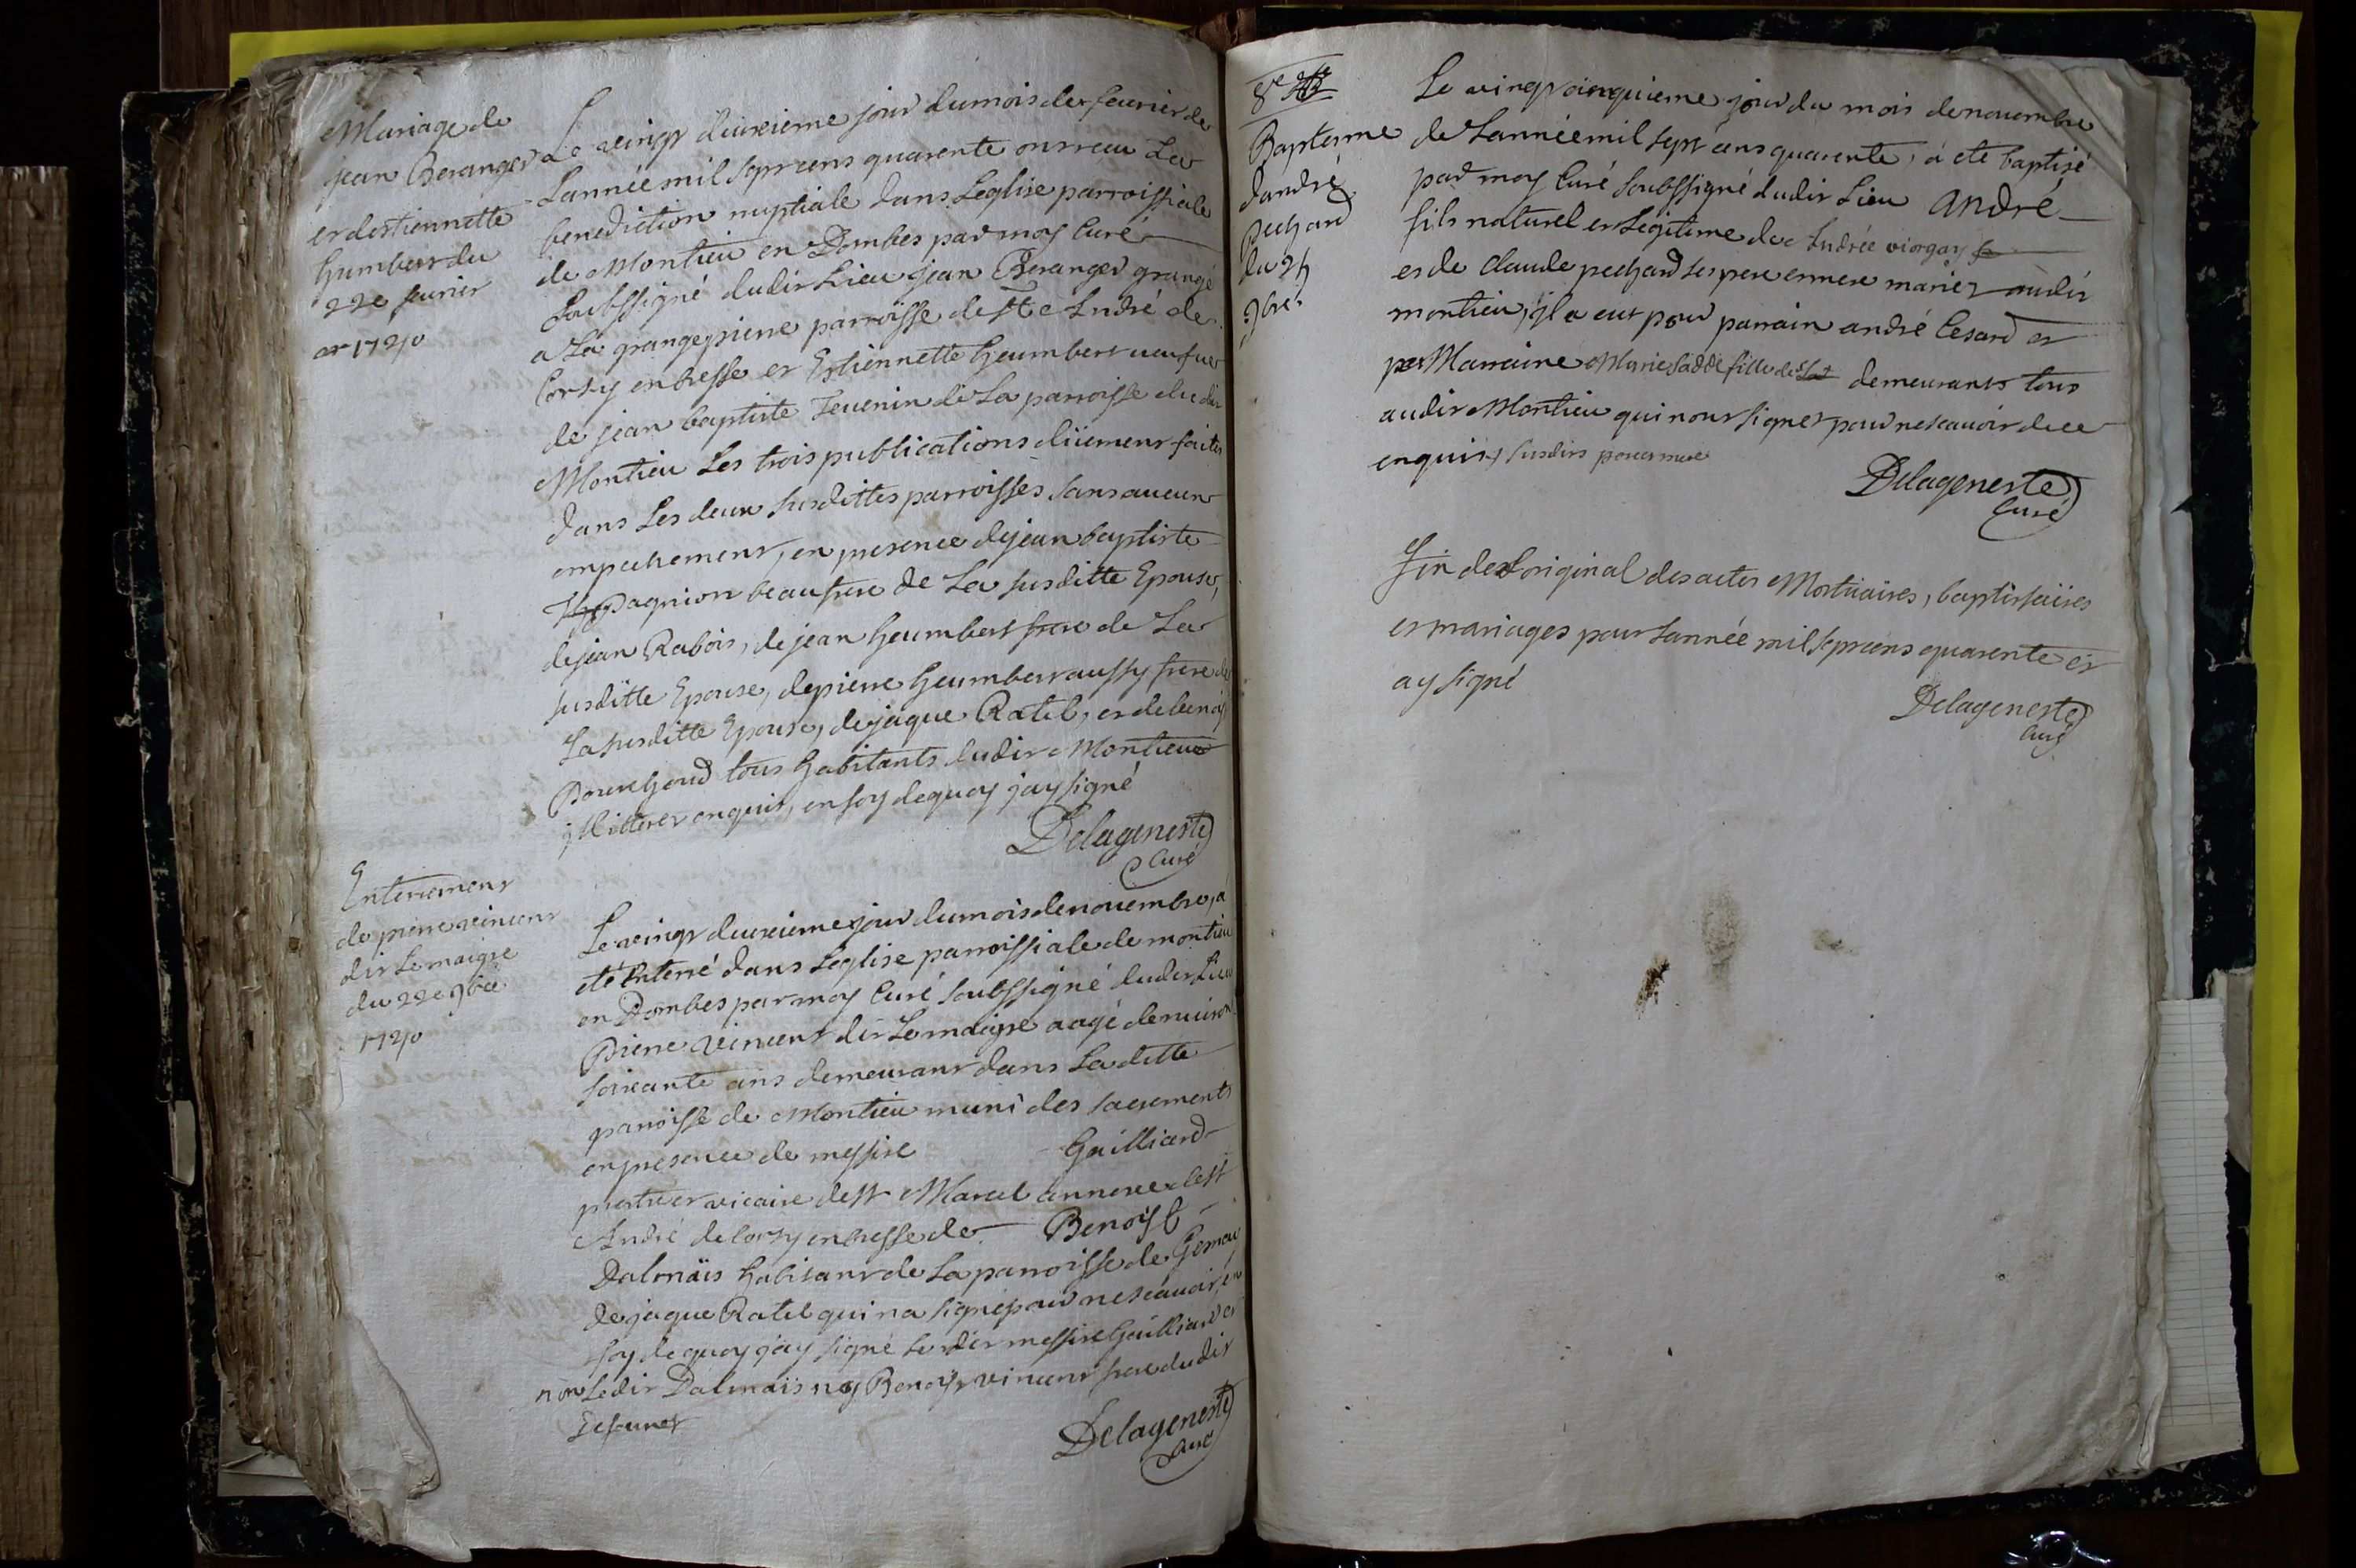 Mariage de
jean Beranger
et destiennette
humbert du
22e feurier
1740
Le vingt deuxieme jour du mois de feurier de
Lannée mil sept cens quarente ont receu La
benediction nuptiale dans Leglise parroissiale
de Montieu en Dombes par moy Curé
Soubssigné dudit Lieu jean Beranger grangé
a La grange pierre parroisse de St André de
Corsy en bresse et Estiennette heumbert ueufue
de jean baptiste Teuenin de La parroisse dudit
Montieu Les trois publications düement faites
dans Les deux susdittes parroisses sans aucun
empechement, en presence de jean baptiste
Pagnion beaufrere de La susditte Epouse,
de jean Rabois, de jean heumbert frere de La
susditte Epouse, de pierre heumbert aussy frere de
La susditte Epouse, de jaque Ratel, et de benoit
tous habitants dudit Montieu
jllitteres enquis, en foy dequoy jay signé
Delageneste
Curé
Enterrement
de pierre vincent
dit Le maigre
du 22e 9bre
1740
Le vingt deuxieme jour du mois de nouembre, a
eté Enterré dans Leglise parroissiale de montieu
en Dombes par moy Curé Soubssigné dudit Lieu
Pierre Vincent dit Le maigre aagé denuiron
soixante ans demeurant dans La ditte
parroisse de Montieu muni des sacrements
en presence de messire Guilliard
pretre et vicaire de St Marcel annexe de St
André de Corsy en bresse de Benoist
Dalmäis habitant de La parroisse de
de jaque Ratel qui na signé pour ne scauoir, en
foy de quoy jäy signé Ledit messire Guilliard et
non Ledit Dalmaïs ny Benoist vincent frere dudit
Delageneste
Curé
8e
Baptesme
dandré
pechard
du 25
9bre
Le vingt cinquieme jour du mois de nouembre
de Lannée mil sept cens quarente, a eté baptisé
par moy Curé Soubssigné dudit Lieu André
fils naturel et Legitime de Andrée viorgay
et de Claude pechard ses pere et mere mariez audit
montieu, jl a eut pour parrain andré Cesard et
Marraine Marie Saddé fille de demeurants tous
audit Montieu qui nont signez pour ne scauoir de ce
enquis, susdits pere et mere
Delageneste
Curé
Fin de Loriginal des actes Mortüaires, baptistaires
et mariages pour Lannée mil sept cens quarente et
ay signé
Delageneste
Curé